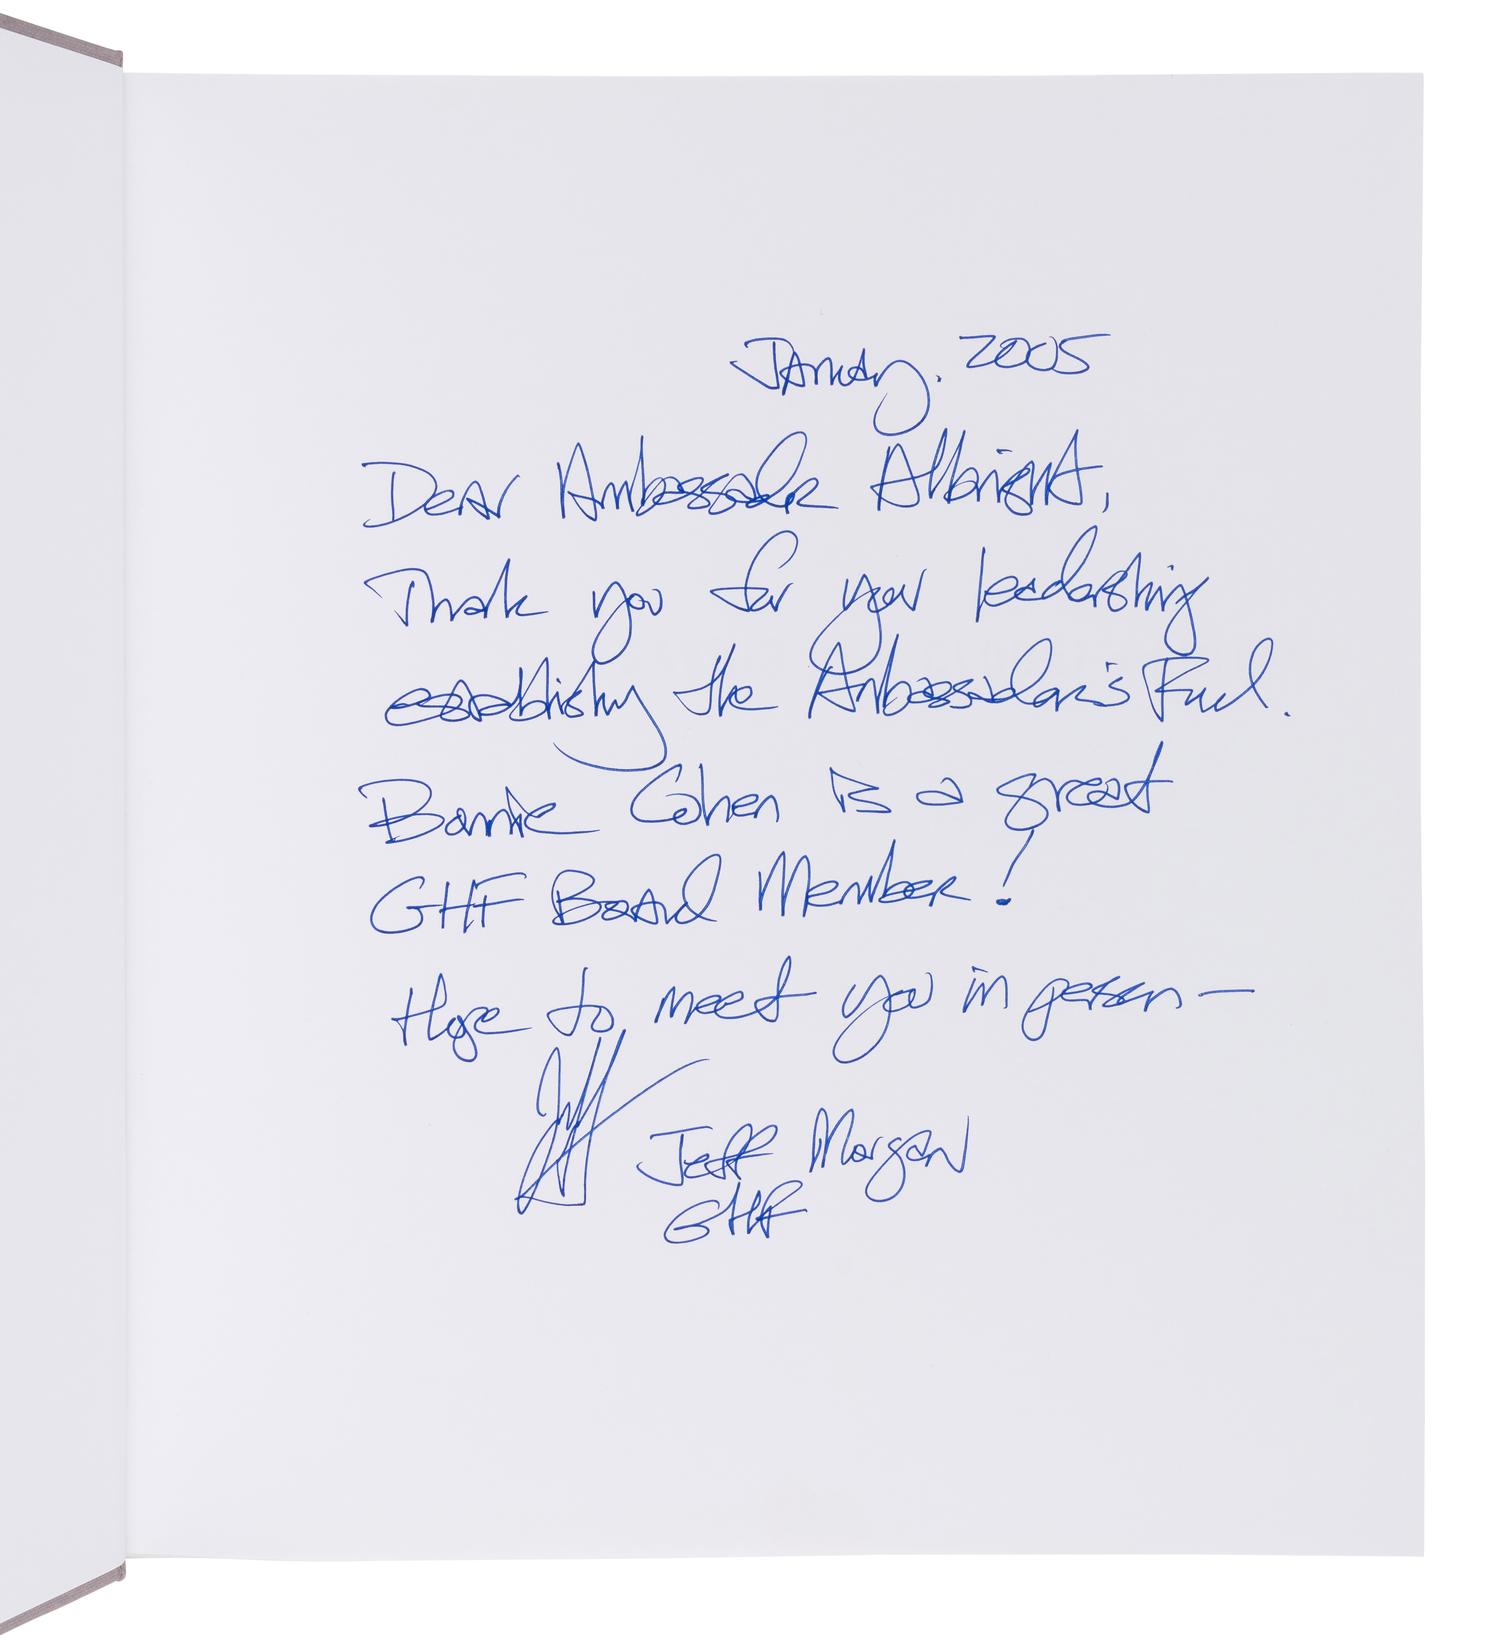 January. 2005
Dear Ambassador Albright,
Thank you for your leadership
establishing the Ambassador's Fund.
Bonnie Cohen is a great
GHF Board Member!
Hope to meet you in person —
Jeff
Jeff Morgan
GHF